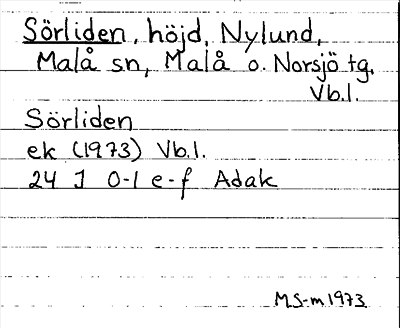 Sörliden, höjd, Nylund,
Malå sn, Malå o. Norsjö tg,
Vb.l.
Sörliden
ek (1973) Vb.l.
24 J 0-1 e-f Adak
MS-m 1973